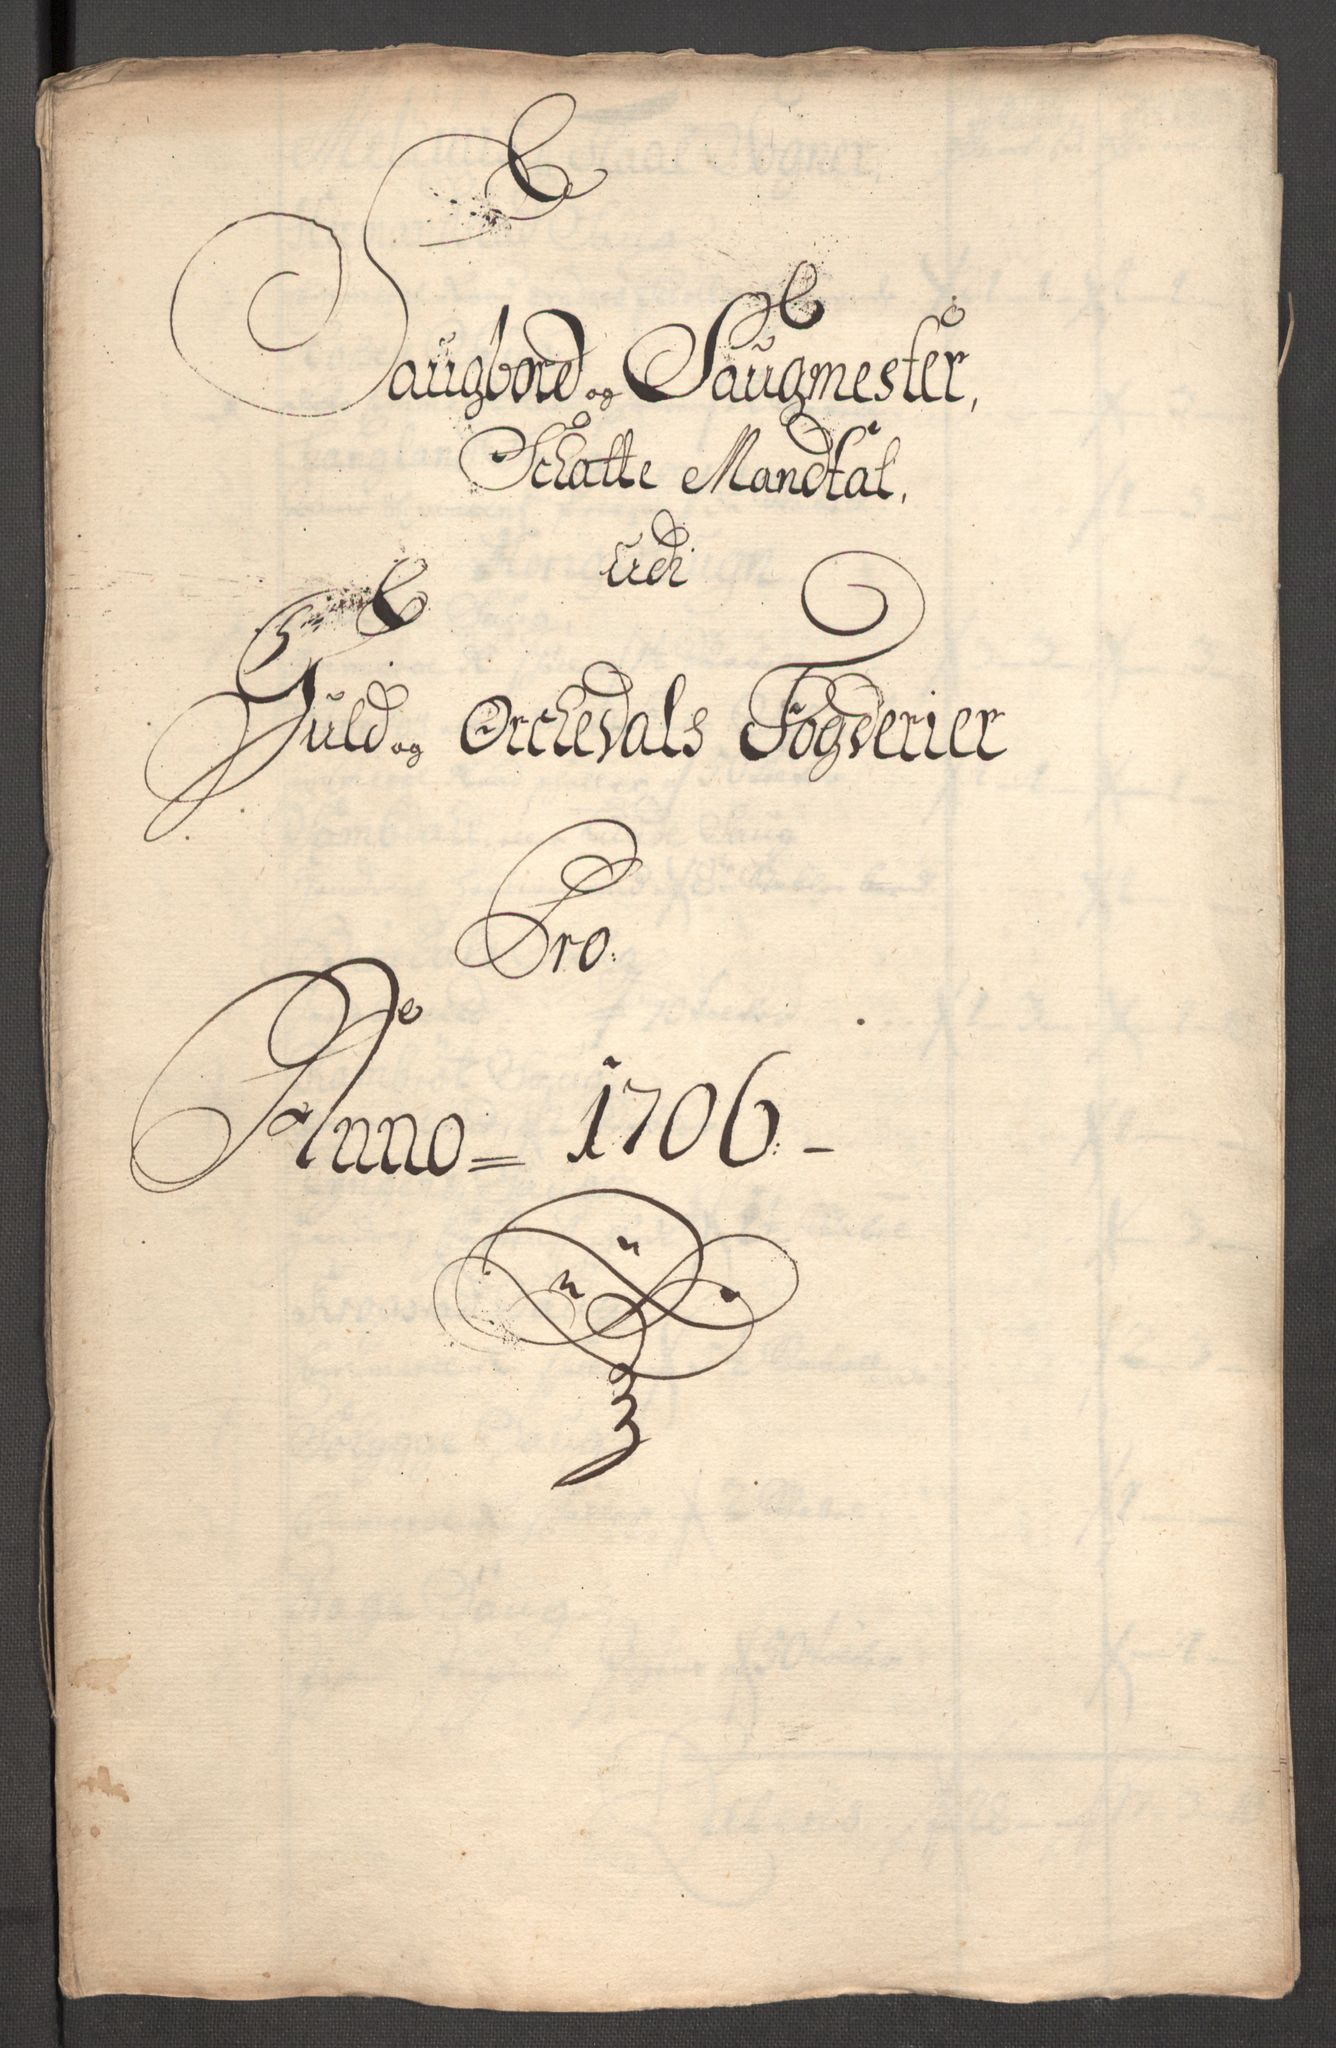 Saugbord og Saugmester,
Schatte Mandtal,
Udi
Guld og Orchedals Fogderier
Pro:
Anno = 1706. -